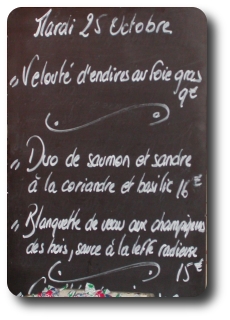 Mardi 25 Octobre
Velouté d'endives au foie gras
9€
Duo de saumon et sandre
à la coriandre et basilic 16€
Blanquette de veau aux champignons
des bois, sauce à la
15€